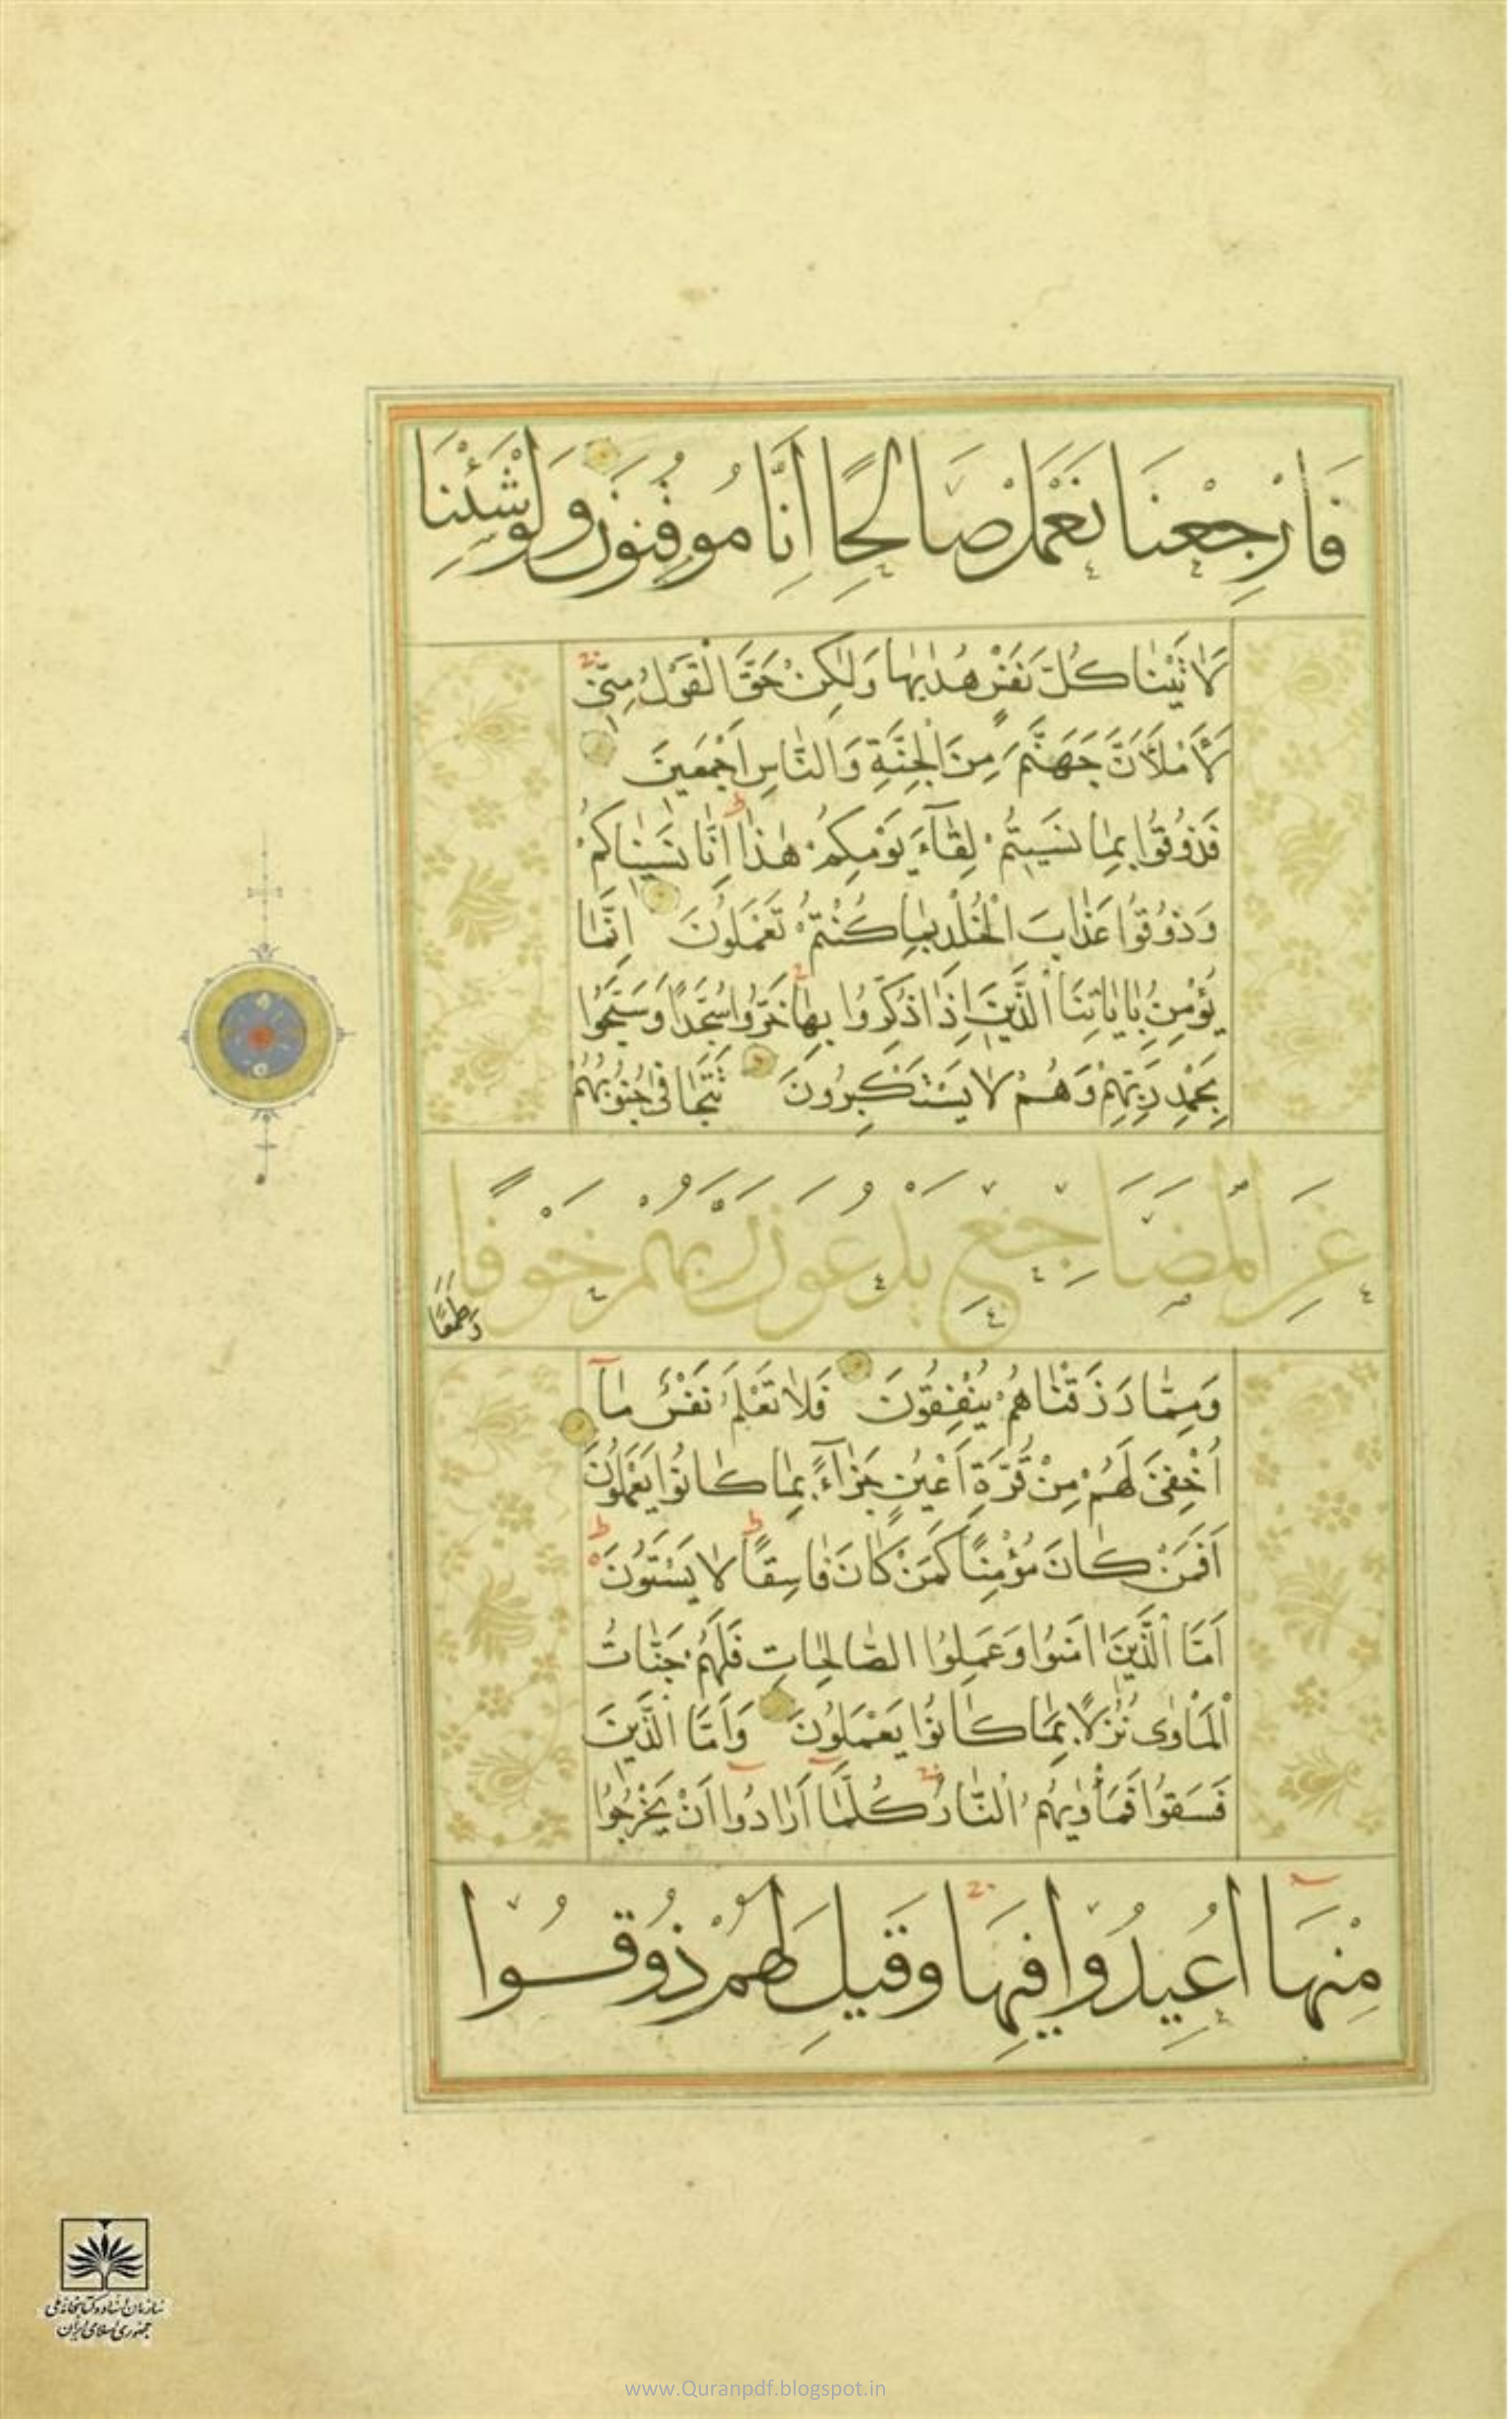 فَارْجِعْنَا نَعْمَلْ صَالِحًا اِنَّا مُوقِنُونَ وَلَوْ شِئْنَا
لَاٰتَيْنَا كُلَّ نَفْسٍ هُدٰيهَا وَلٰكِنْ حَقَّ الْقَوْلُ مِنّٖى
لَاَمْلَاَنَّ جَهَنَّمَ مِنَ الْجِنَّةِ وَالنَّاسِ اَجْمَعٖينَ
فَذُوقُوا بِمَا نَسٖيتُمْ لِقَٓاءَ يَوْمِكُمْ هٰذَا اِنَّا نَسٖينَاكُمْ
وَذُوقُوا عَذَابَ الْخُلْدِ بِمَا كُنْتُمْ تَعْمَلُونَ اِنَّمَا
يُؤْمِنُ بِاٰيَاتِنَا الَّذٖينَ اِذَا ذُكِّرُوا بِهَا خَرُّوا سُجَّدًا وَسَبَّحُوا
بِحَمْدِ رَبِّهِمْ وَهُمْ لَا يَسْتَكْبِرُونَ تَتَجَافٰى جُنُوبُهُمْ
عَنِ الْمَضَاجِعِ يَدْعُونَ رَبَّهُمْ خَوْفًا
وَطَمَعًا
وَمِمَّا رَزَقْنَاهُمْ يُنْفِقُونَ فَلَا تَعْلَمُ نَفْسٌ مَٓا
اُخْفِىَ لَهُمْ مِنْ قُرَّةِ اَعْيُنٍ جَزَٓاءً بِمَا كَانُوا يَعْمَلُونَ
اَفَمَنْ كَانَ مُؤْمِنًا كَمَنْ كَانَ فَاسِقًا لَا يَسْتَوُونَ
اَمَّا الَّذٖينَ اٰمَنُوا وَعَمِلُوا الصَّالِحَاتِ فَلَهُمْ جَنَّاتُ
الْمَاْوٰى نُزُلًا بِمَا كَانُوا يَعْمَلُونَ وَاَمَّا الَّذٖينَ
فَسَقُوا فَمَاْوٰيهُمُ النَّارُ كُلَّمَٓا اَرَادُٓوا اَنْ يَخْرُجُوا
مِنْهَٓا اُعٖيدُوا فٖيهَا وَقٖيلَ لَهُمْ ذُوقُوا
سازمان اسناد و کتابخانه ملی
جمهوری اسلامی ایران
www.Quranpdf.blogspot.in